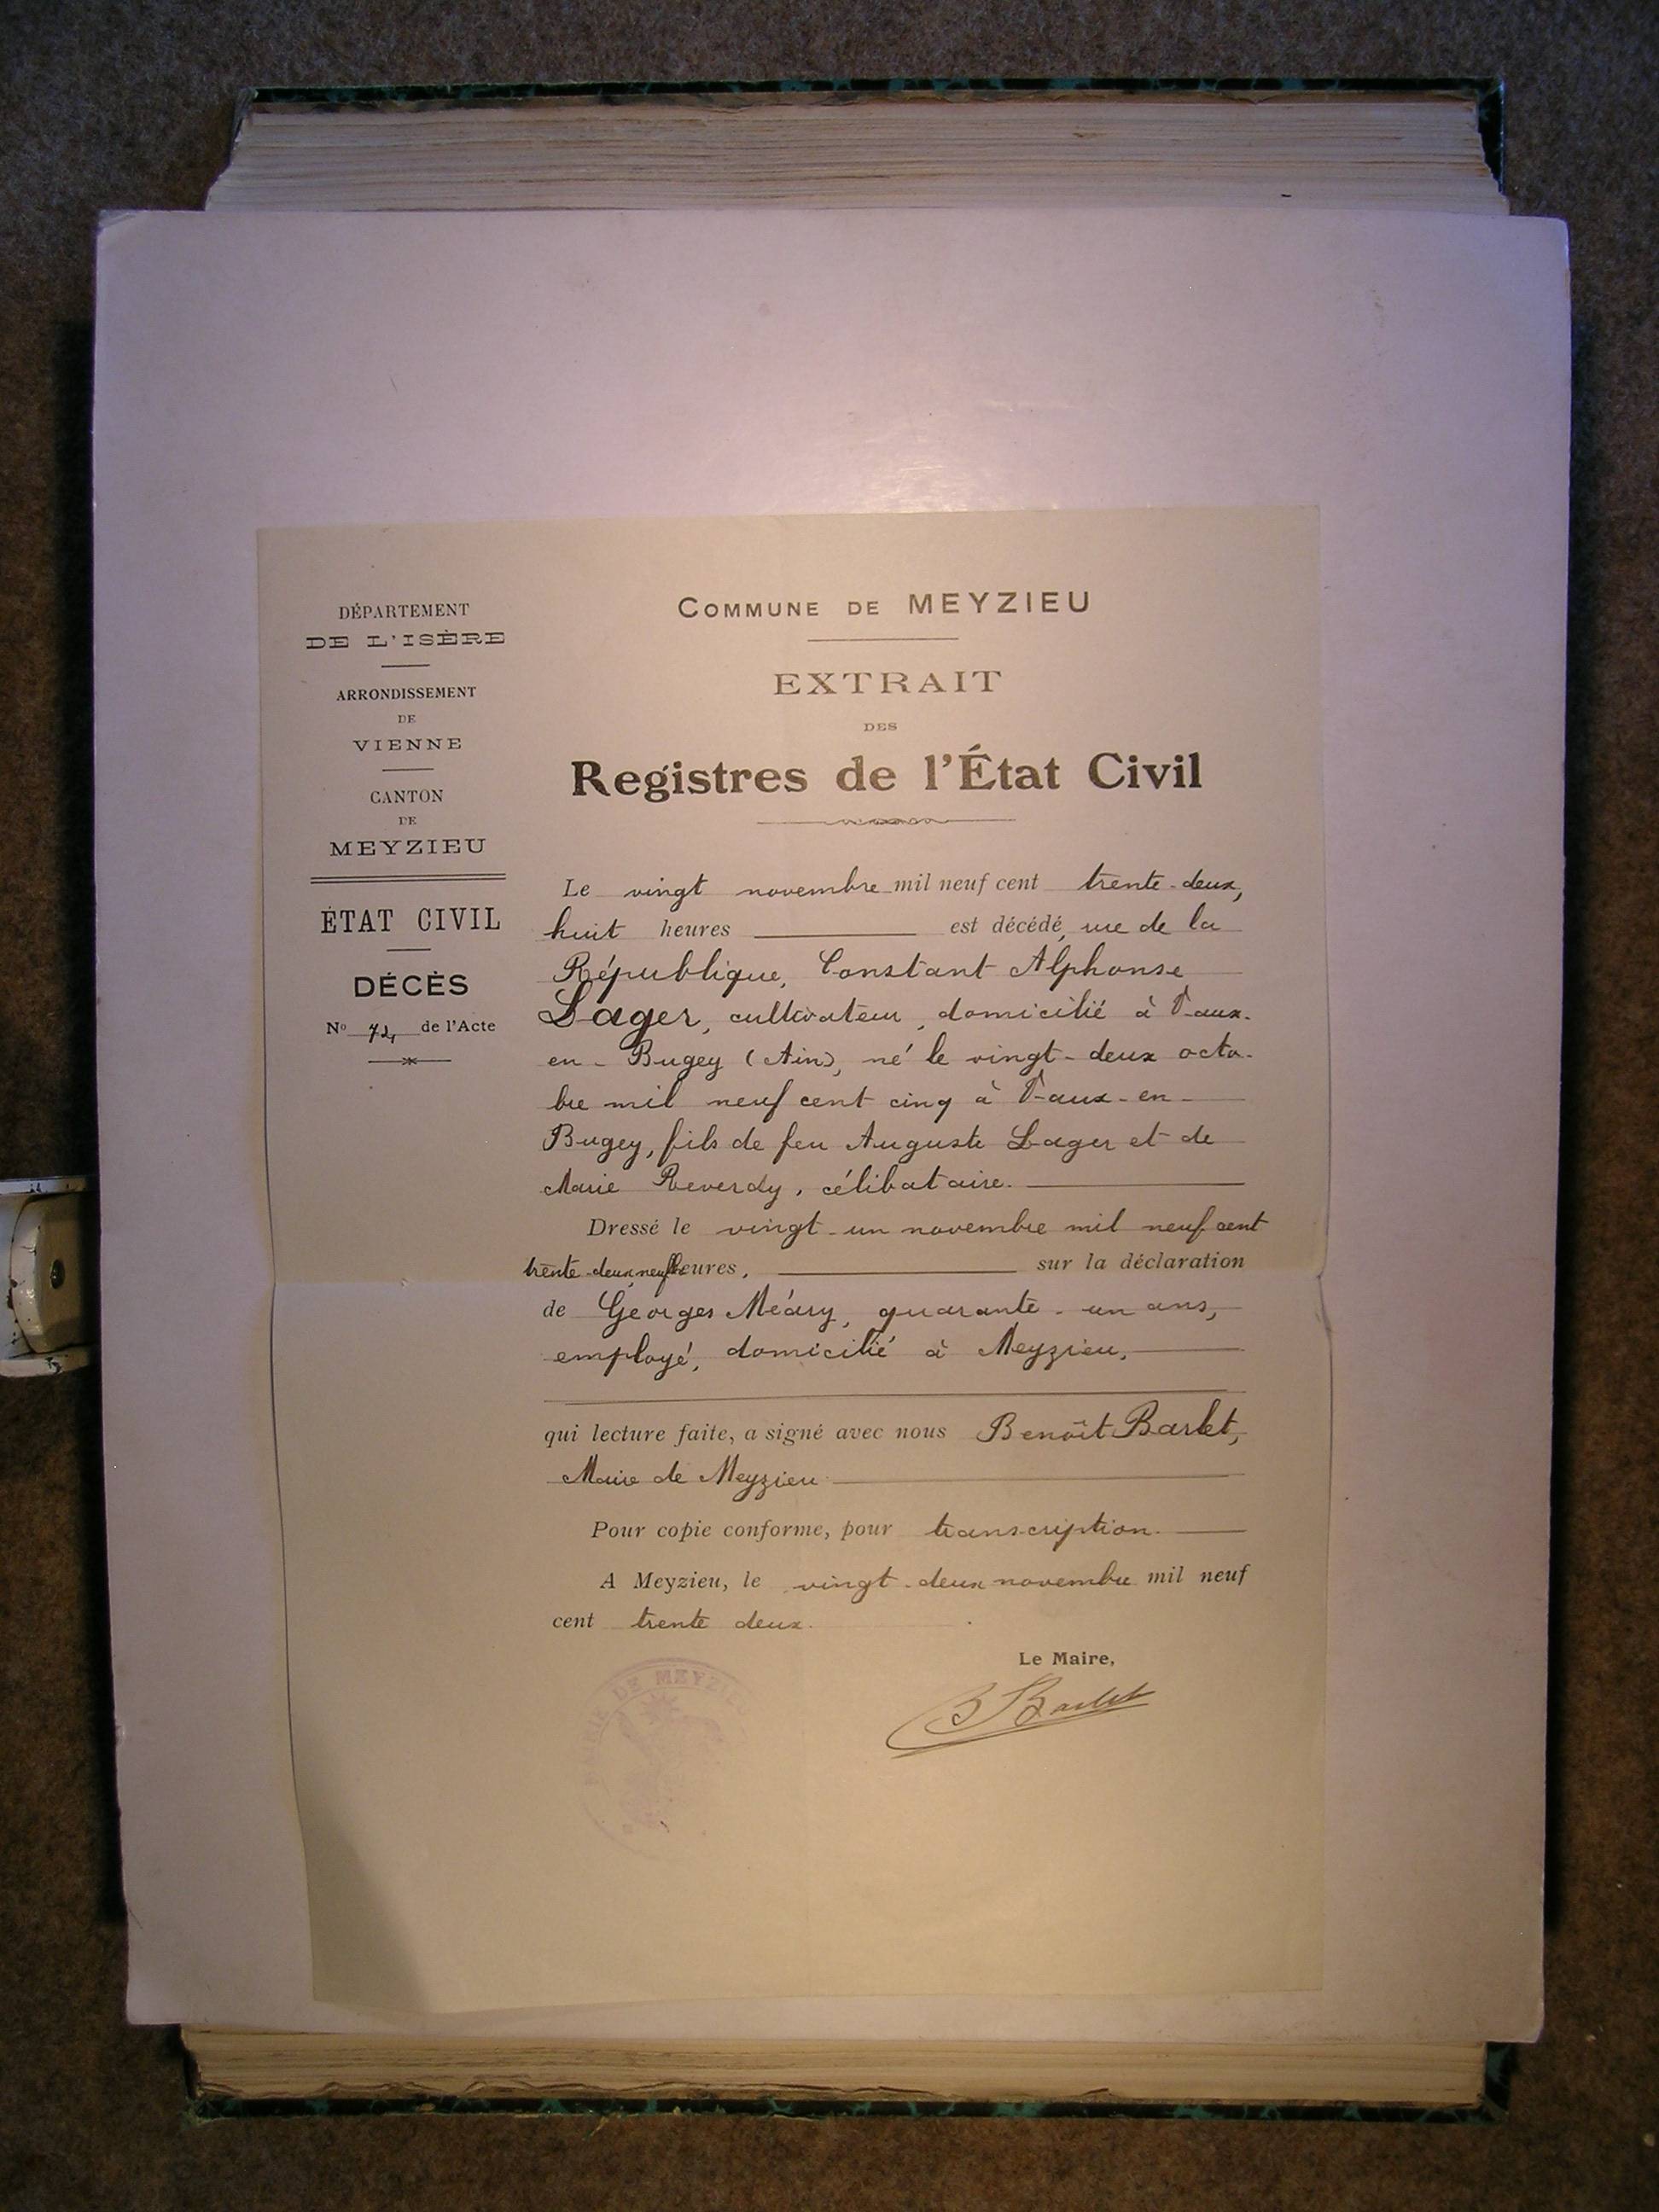 DÉPARTEMENT
DE L'ISÈRE
ARRONDISSEMENT
DE
VIENNE
CANTON
DE
MEYZIEU
ÉTAT CIVIL
DÉCÈS
No 74 de l'Acte
COMMUNE DE MEYZIEU
EXTRAIT
DES
Registres de l'État Civil
Le vingt novembre mil neuf cent trente-deux,
huit heures est décédé, rue de la
République, Constant Alphonse
Lager, cultivateur, domicilié à Vaux-
en-Bugey (Ain), né le vingt-deux octo-
bre mil neuf cent cinq à Vaux-en-
Bugey, fils de feu Auguste Lager et de
Marie Reverdy, célibataire.
Dressé le vingt-un novembre mil neuf cent
trente-deux, neuf heures, sur la déclaration
de Georges Méary, quarante-un ans,
employé, domicilié à Meyzieu,
qui lecture faite, a signé avec nous Benoît Barlet,
Maire de Meyzieu
Pour copie conforme, pour transcription.
A Meyzieu, le vingt-deux novembre mil neuf
cent trente deux.
Le Maire,
B Barlet
MAIRIE DE MEYZIEU